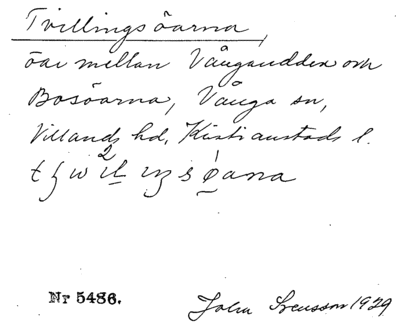 Tvillingsöarna,
öar mellan Vångaudden och
Bosöarna, Vånga sn,
Villands hd, Kristianstads l.
Nr 5486.
John Svensson 1929